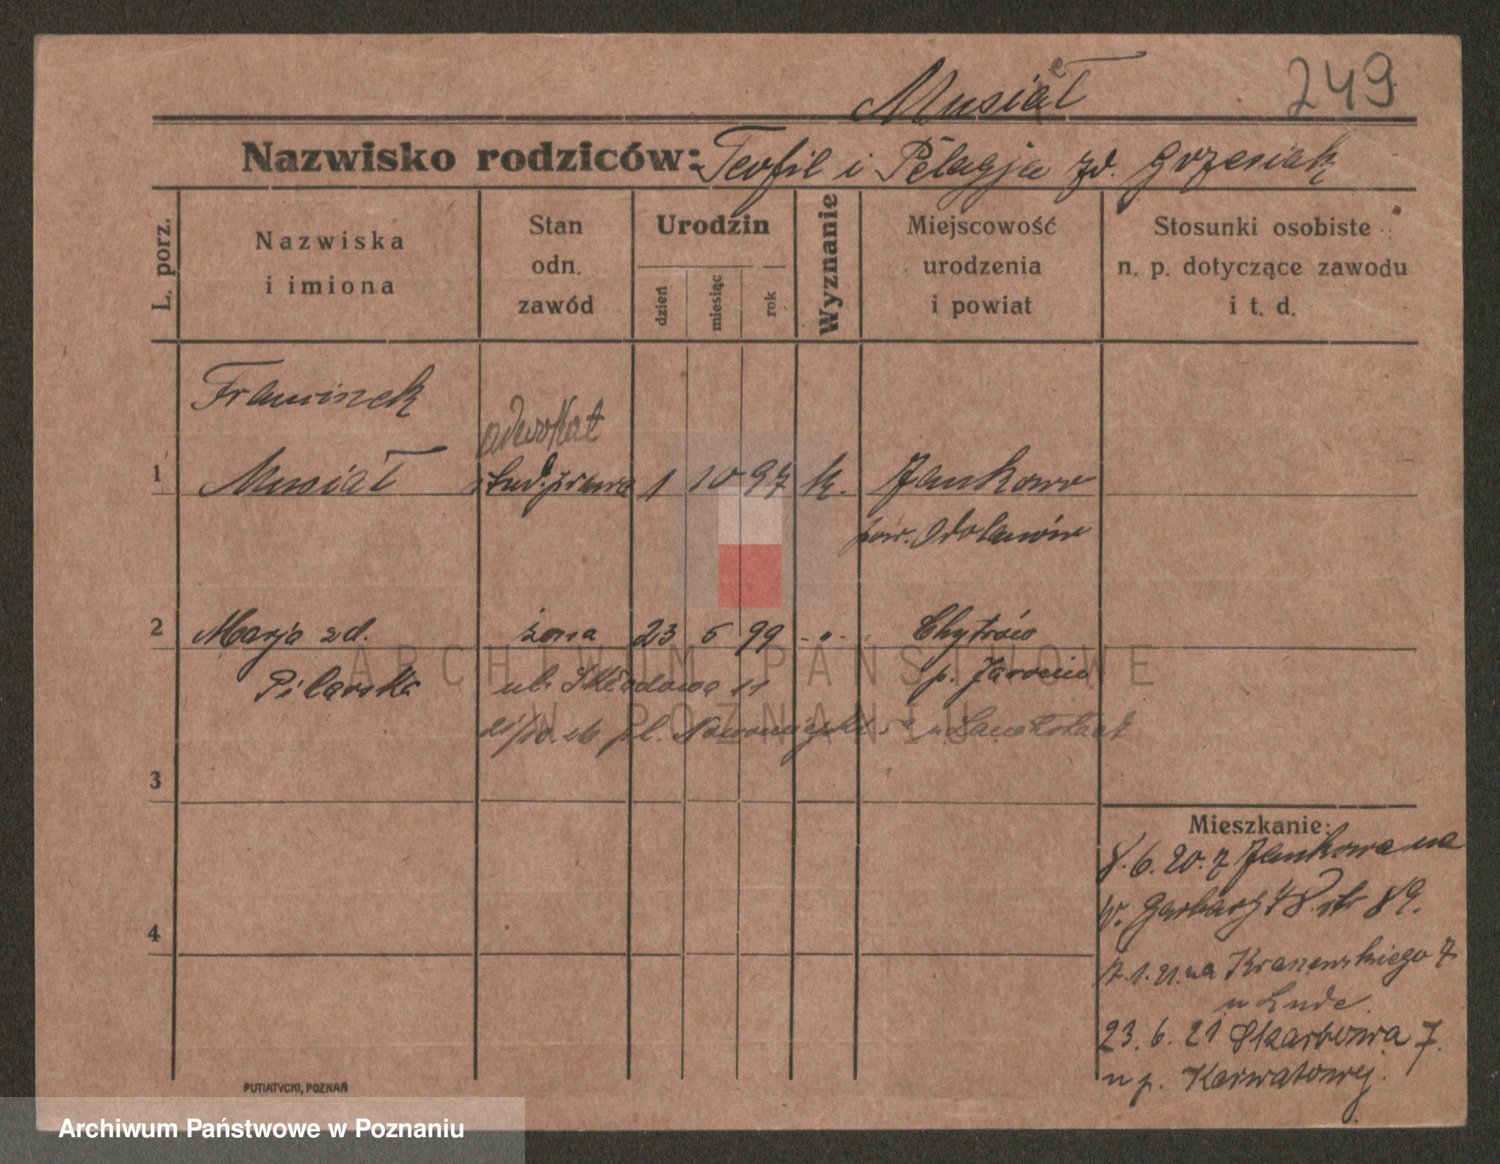 Musiał
249
Nazwisko rodziców: Teofil i Pelagja zd. Grzesiak
L. porz.
Nazwiska
i imiona
Stan
odn.
zawód
Urodzin
dzień
miesiąc
rok
Wyznanie
Miejscowość
urodzenia
i powiat
Stosunki osobiste
n. p. dotyczące zawodu
i t. d.
Franciszek
adwokat
1 Musiał stud. prawa 1 10 97 k. Jankowo
pow. Odolanów
2 Marja zd. żona 23 5 99 - " - Chytrów
Pilarska ul. Składowa 11 p. Jarocin
26 pl. Nowomiejski 5a u
3
Mieszkanie:
8. 6. 20. z Jankowa na
W. Garbary 48. 89.
4
7. 1. 21. na Kraszewskiego 7
u
23. 6. 21 Skarbowa 7.
u p. Karwatowej.
PUTIATYCKI, POZNAŃ
ARCHIWUM PAŃSTWOWE
W POZNANIU
Archiwum Państwowe w Poznaniu